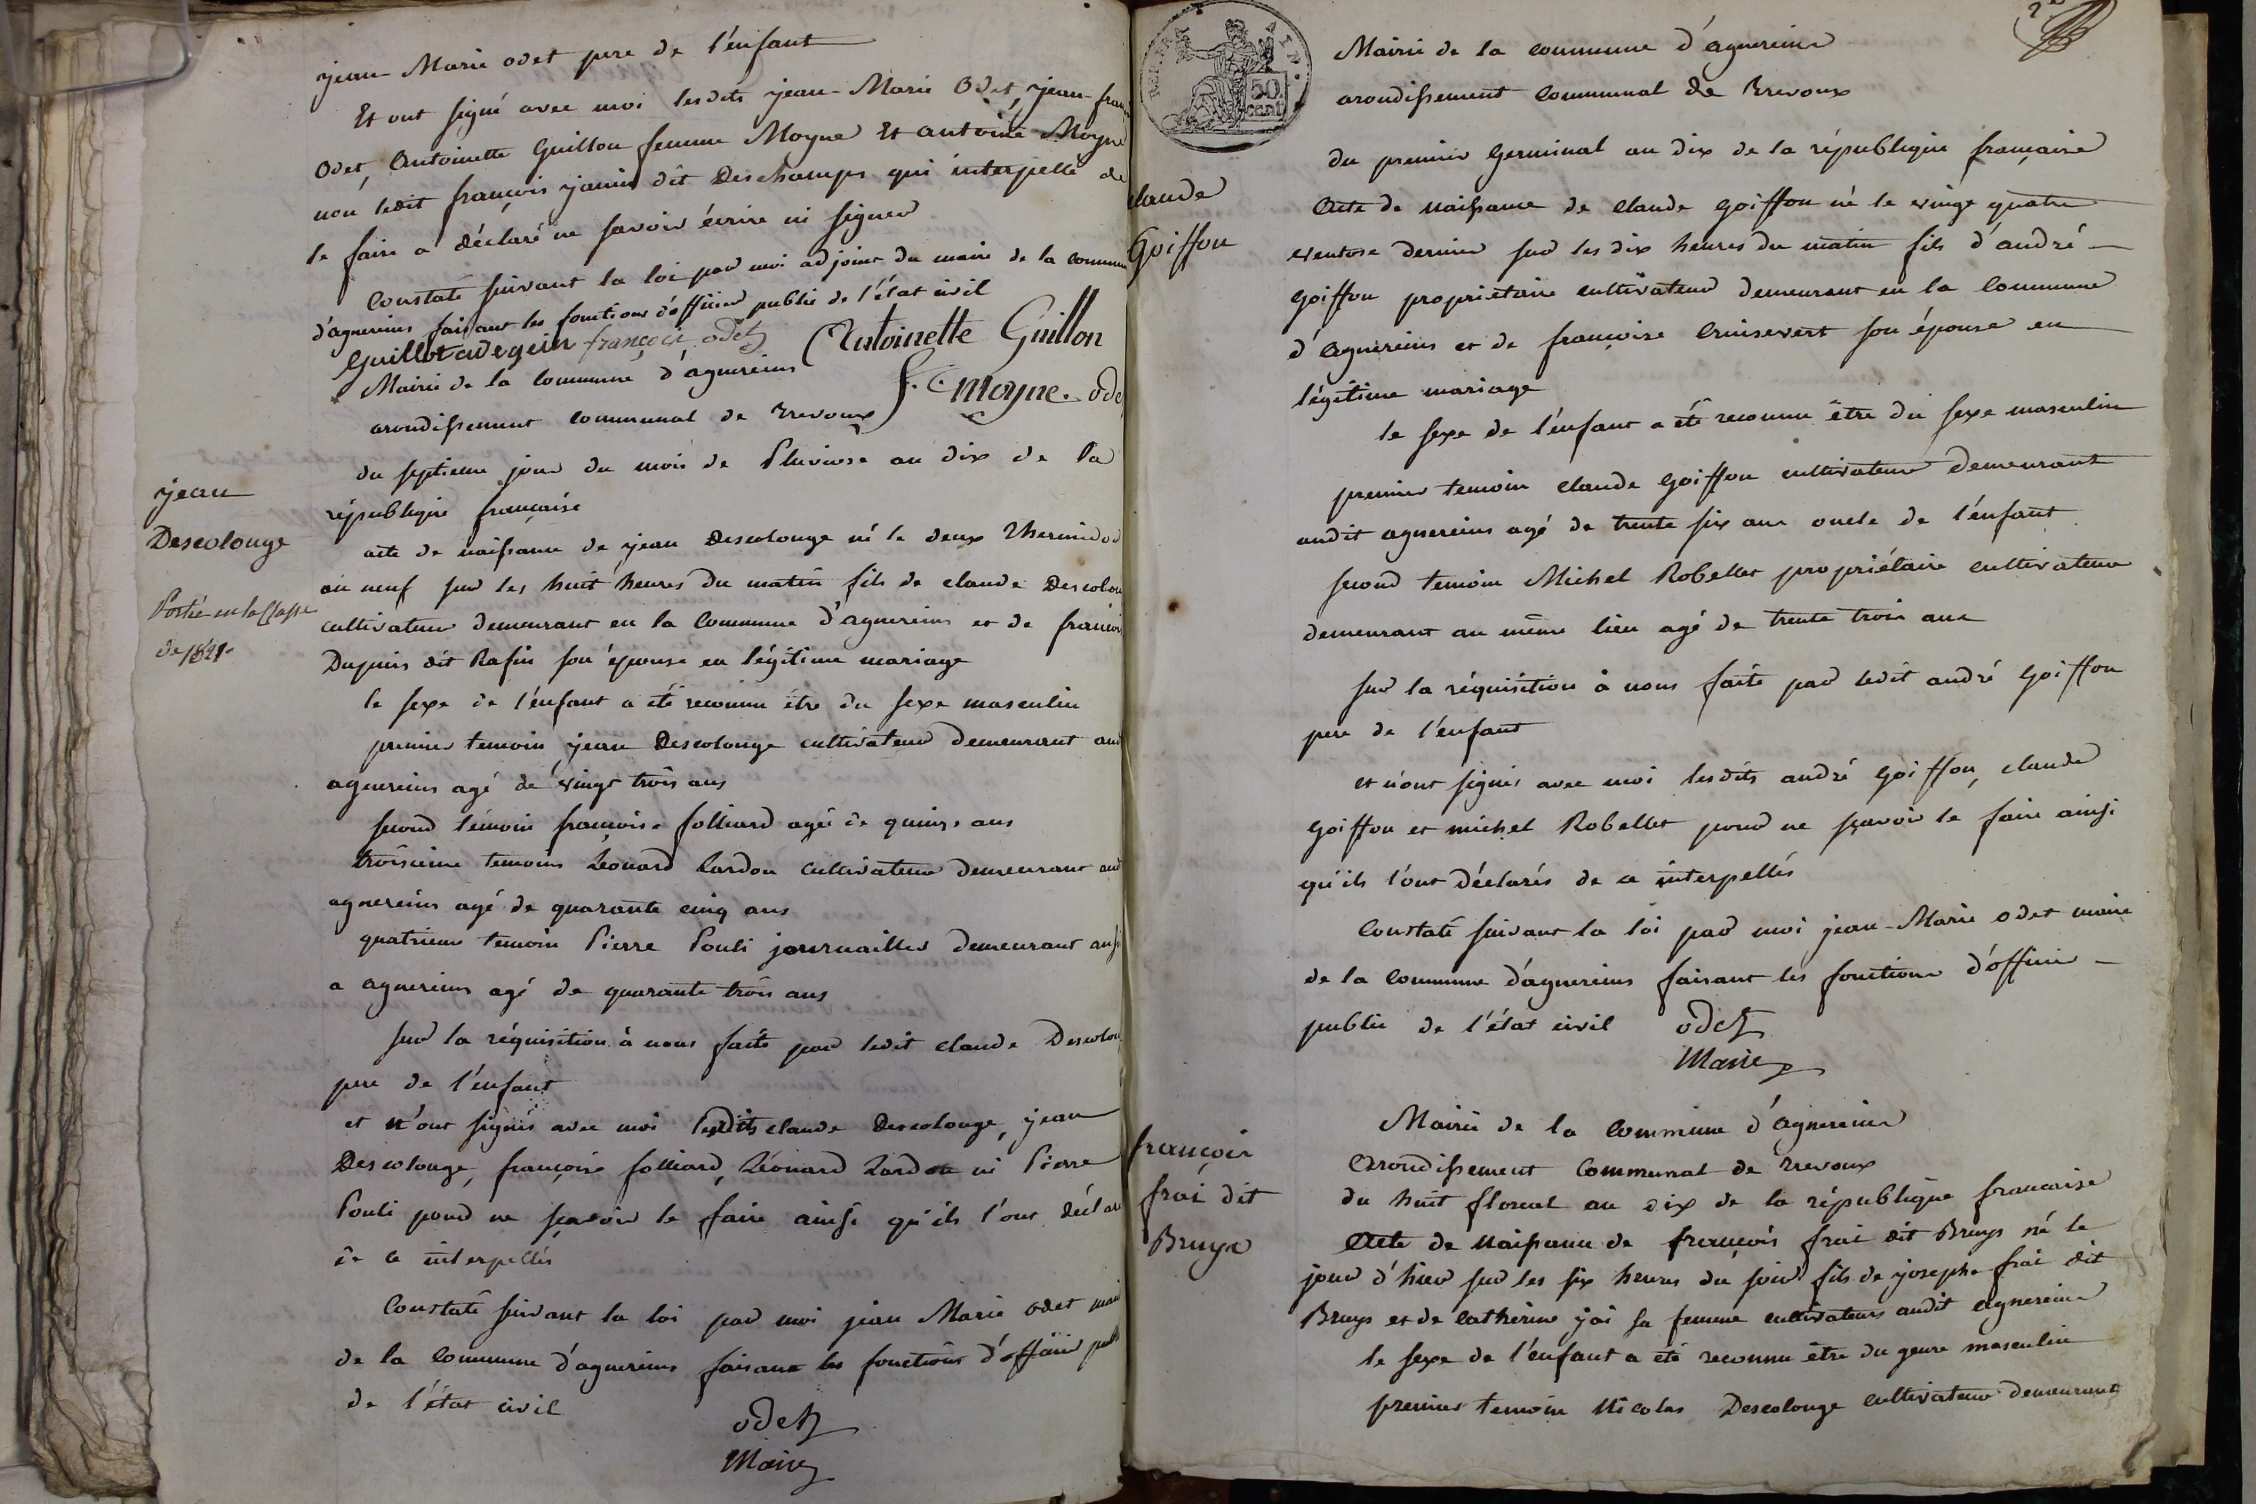 jean Marie odet pere de l'enfant
Et ont signé avec moi lesdits jean-Marie Odet, jean fran
Odet, Antoinette Guillon femme Moyne Et antoine Moyne
non ledit françois janin dit Deschamps qui interpellé de
le faire a déclaré ne savoir écrire ni signer
Constaté suivant la loi par moi adjoint du maire de la commun
d'agnereins faisant les fonctions d'officier public de l'état civil
Guillot adegoin françois odet Antoinette Guillon
Mairie de la Commune d'agnereins
f. C. moyne. ode
arondissement communal de Trevoux
jean
Descolonge
Porté en la classe
de 1821.
du septieme jour du mois de Pluviose an dix de la
république française
acte de naissance de jean Descolonge né le deux Thermidor
an neuf sur les huit heures du matin fils de claude Descolon
cultivateur demeurant en la Commune d'agnereins et de françois
Dupuis dit Rafin son épouse en légitime mariage
le sexe de l'enfant a été reconnu être du sexe masculin
premier temoin jean Descolonge cultivateur demeurant aud
agnereins agé de vingt trois ans
second témoin françoise folliard agée de quinze ans
troisieme temoins Léonard Lardon cultivateur demeurant aud
agnereins agé de quarante cinq ans
quatrieme temoin Pierre Pouli journaillier demeurant aussi
a agnereins agé de quarante trois ans
sur la réquisition à nous faite par ledit claude Descolon
pere de l'enfant
et n'ont signés avec moi lesdits claude Descolonge, jean
Descolonge, françoise folliard, Léonard Lardon ni Pierre
Pouli pour ne sçavoir le faire ainsi qu'ils l'ont déclaré
de ce interpellés
Constaté suivant la loi par moi jean Marie odet mair
de la Commune d'agnereins faisant les fonctions d'officier publi
de l'état civil
odet
Maire
50
cent.
Mairie de la commune d'agnereins
arondissement Communal de Trevoux
claude
Goiffon
du premier Germinal an dix de la république française
Acte de naissance de Claude Goiffon né le vingt quatre
ventose dernier sur les dix heures du matin fils d'andré
Goiffon propriétaire cultivateur demeurant en la Commune
d'agnereins et de françoise Cruisevert son épouse en
légitime mariage
le sexe de l'enfant a été reconnu être du sexe masculin
premier temoin claude Goiffon cultivateur demeurant
audit agnereins agé de trente six ans oncle de l'enfant
second temoin Michel Robellet propriétaire cultivateur
demeurant au même lieu agé de trente trois ans
sur la réquisition à nous faite par ledit andré Goiffon
pere de l'enfant
et n'ont signés avec moi lesdits andré Goiffon, claude
Goiffon et michel Robellet pour ne sçavoir le faire ainsi
qu'ils l'ont déclarés de ce interpellés
Constaté suivant la loi par moi jean-Marie odet maire
de la Commune d'agnereins faisant les fonctions d'officier
public de l'état civil
odet
Maire
Mairie de la commune d'agnereins
Arondissement Communal de Trevoux
françois
frai dit
Bruys
du huit floreal an dix de la république francaise
Acte de naissance de françois frai dit Bruys né le
jour d'hier sur les six heures du soir fils de joseph frai dit
Bruys et de Catherine jai sa femme cultivateurs audit agnereins
le sexe de l'enfant a été reconnu être du genre masculin
premier temoin Nicolas Descolonge cultivateur demeurant